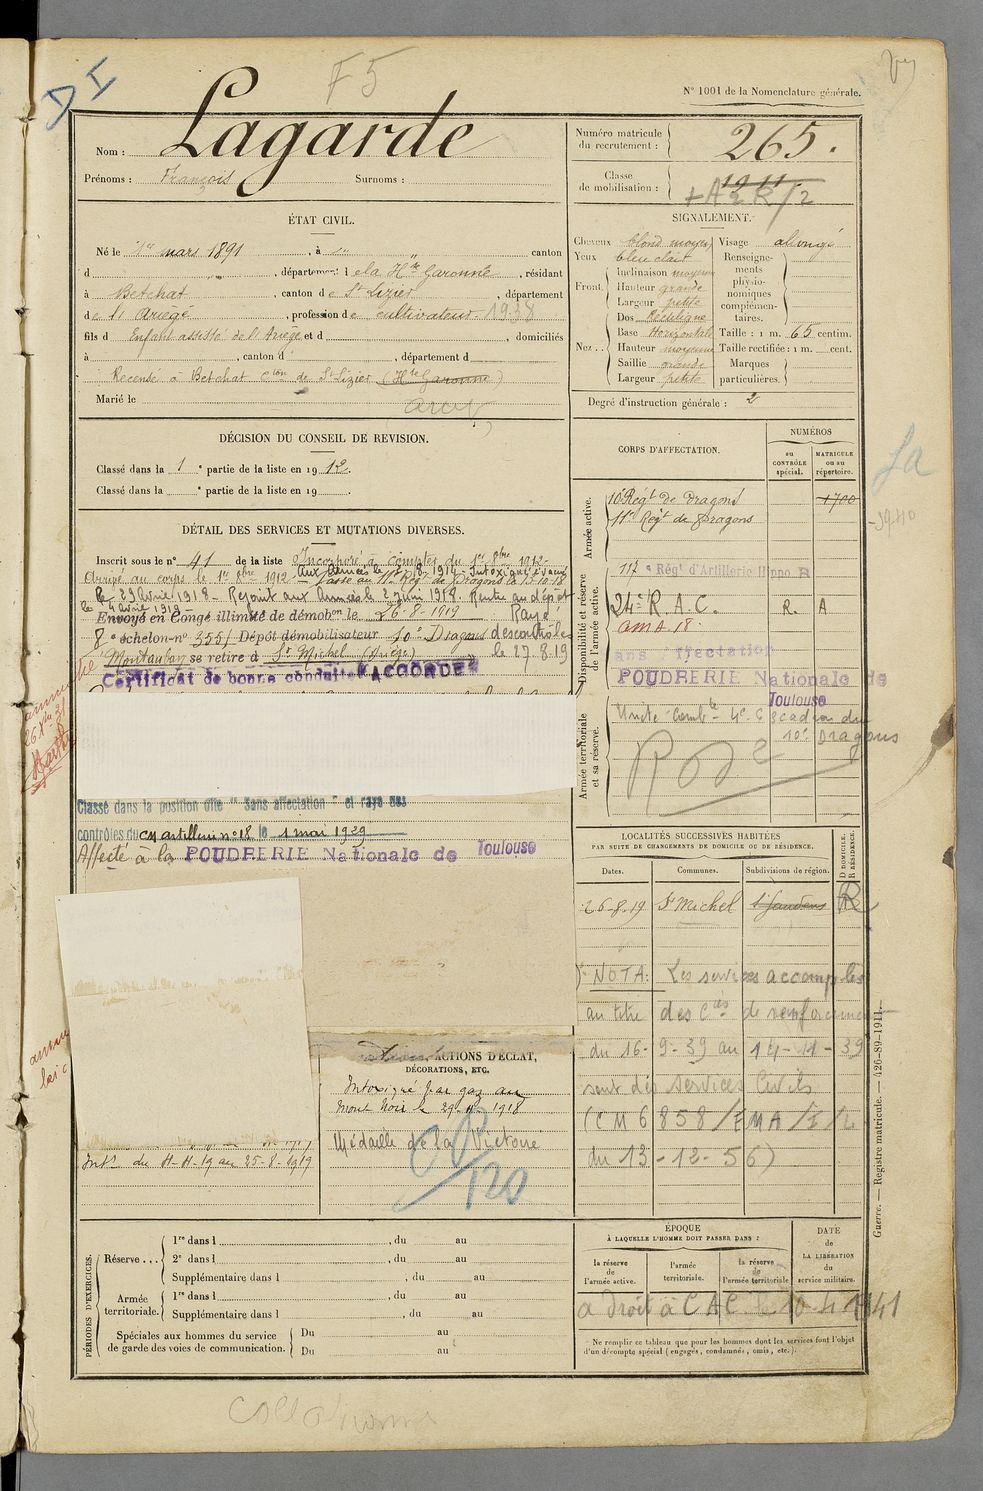 F5
D I
N° 1001 de la Nomenclature générale.
Nom : Lagarde
Prénoms : François Surnoms :
Numéro matricule du recrutement : 265.
Classe de mobilisation : 1911
+A 2R/2
ÉTAT CIVIL.
Né le 1er mars 1891, à canton
d , département de la Hte Garonne, résidant
à Betchat, canton de St Lizier, département
de l'Ariège, profession de cultivateur 1938
fils d Enfant assisté de l'Ariège et d , domiciliés
à , canton d , département d
Recensé à Betchat Cton de St Lizier (Hte Garonne)
Marié le
SIGNALEMENT.
Cheveux blond moyen
Yeux bleu clair
Front. Inclinaison moyenne
Hauteur grande
Largeur petite
Nez .. Dos Rectiligne
Base Horizontale
Hauteur moyenne
Saillie grande
Largeur petite
Visage allongé
Renseignements physionomiques complémentaires.
Taille : 1 m. 65 centim.
Taille rectifiée : 1 m. cent.
Marques particulières.
Degré d'instruction générale : 2
DÉCISION DU CONSEIL DE REVISION.
Classé dans la 1e partie de la liste en 1912.
Classé dans la e partie de la liste en 19 .
DÉTAIL DES SERVICES ET MUTATIONS DIVERSES.
Inscrit sous le n° 41 de la liste Incorporé à compter du 1er 8bre 1912
Arrivé au corps le 1er 8bre 1912 Aux Armées le
Passé au 11e Regt de Dragons le 15-10-18
le 29 avril 1918 - Rejoint aux Armées le 2 juin 1918. Rentre au dépôt
le 4 avril 1919
Envoyé en Congé illimité de démobon le 26-8-1919 Rayé
8e échelon n° 355 / Dépôt démobilisateur 10e Dragons des contrôles
Montauban se retire à St Michel (Ariège) le 27.8.19
Certificat de bonne conduite "ACCORDÉ"
Classé dans la position dite "Sans affectation" et rayé des
contrôles du CM artillerie n° 18 le 1 mai 1929
Affecté à la POUDRERIE Nationale de Toulouse
Intr du 11-11-19 au 25-8-1919
ACTIONS D'ÉCLAT,
DÉCORATIONS, ETC.
Intoxiqué par gaz au
Mont Noir le 29-4-1918
Médaille de la Victoire
120
CORPS D'AFFECTATION.
NUMÉROS
au CONTRÔLE spécial.
MATRICULE ou au répertoire.
Armée active.
10e Regt de Dragons 1700
11e Regt de Dragons
Disponibilité et réserve de l'armée active.
117e Régt d'Artillerie Hippo R
24e R.A.C. R. A
CMA. 18.
Sans affectation
POUDRERIE Nationale de
Toulouse
Armée territoriale et sa réserve.
Unité Combte 4e Escadron du
10e Dragons
LOCALITÉS SUCCESSIVES HABITÉES
PAR SUITE DE CHANGEMENTS DE DOMICILE OU DE RÉSIDENCE.
Dates. Communes. Subdivisions de région. D DOMICILE. R RÉSIDENCE.
26-8-19 St Michel St Gaudens R
NOTA: Les services accomplis
au titre des Cies de renforcement
du 16-9-39 au 14-11-39
sont des services Civils
(CM 6858/EMA/I/L
du 13-12-56)
PÉRIODES D'EXERCICES.
Réserve ... 1re dans l , du au
2e dans l , du au
Supplémentaire dans l , du au
Armée territoriale. 1re dans l , du au
Supplémentaire dans l , du au
Spéciales aux hommes du service de garde des voies de communication. Du au
Du au
ÉPOQUE
À LAQUELLE L'HOMME DOIT PASSER DANS :
la réserve de l'armée active.
l'armée territoriale.
la réserve de l'armée territoriale
DATE de LA LIBÉRATION du service militaire.
a droit à CAC le 10-4-1941
Ne remplir ce tableau que pour les hommes dont les services font l'objet
d'un décompte spécial (engagés, condamnés, omis, etc.).
Guerre. — Registre matricule. — 426-89-1911.